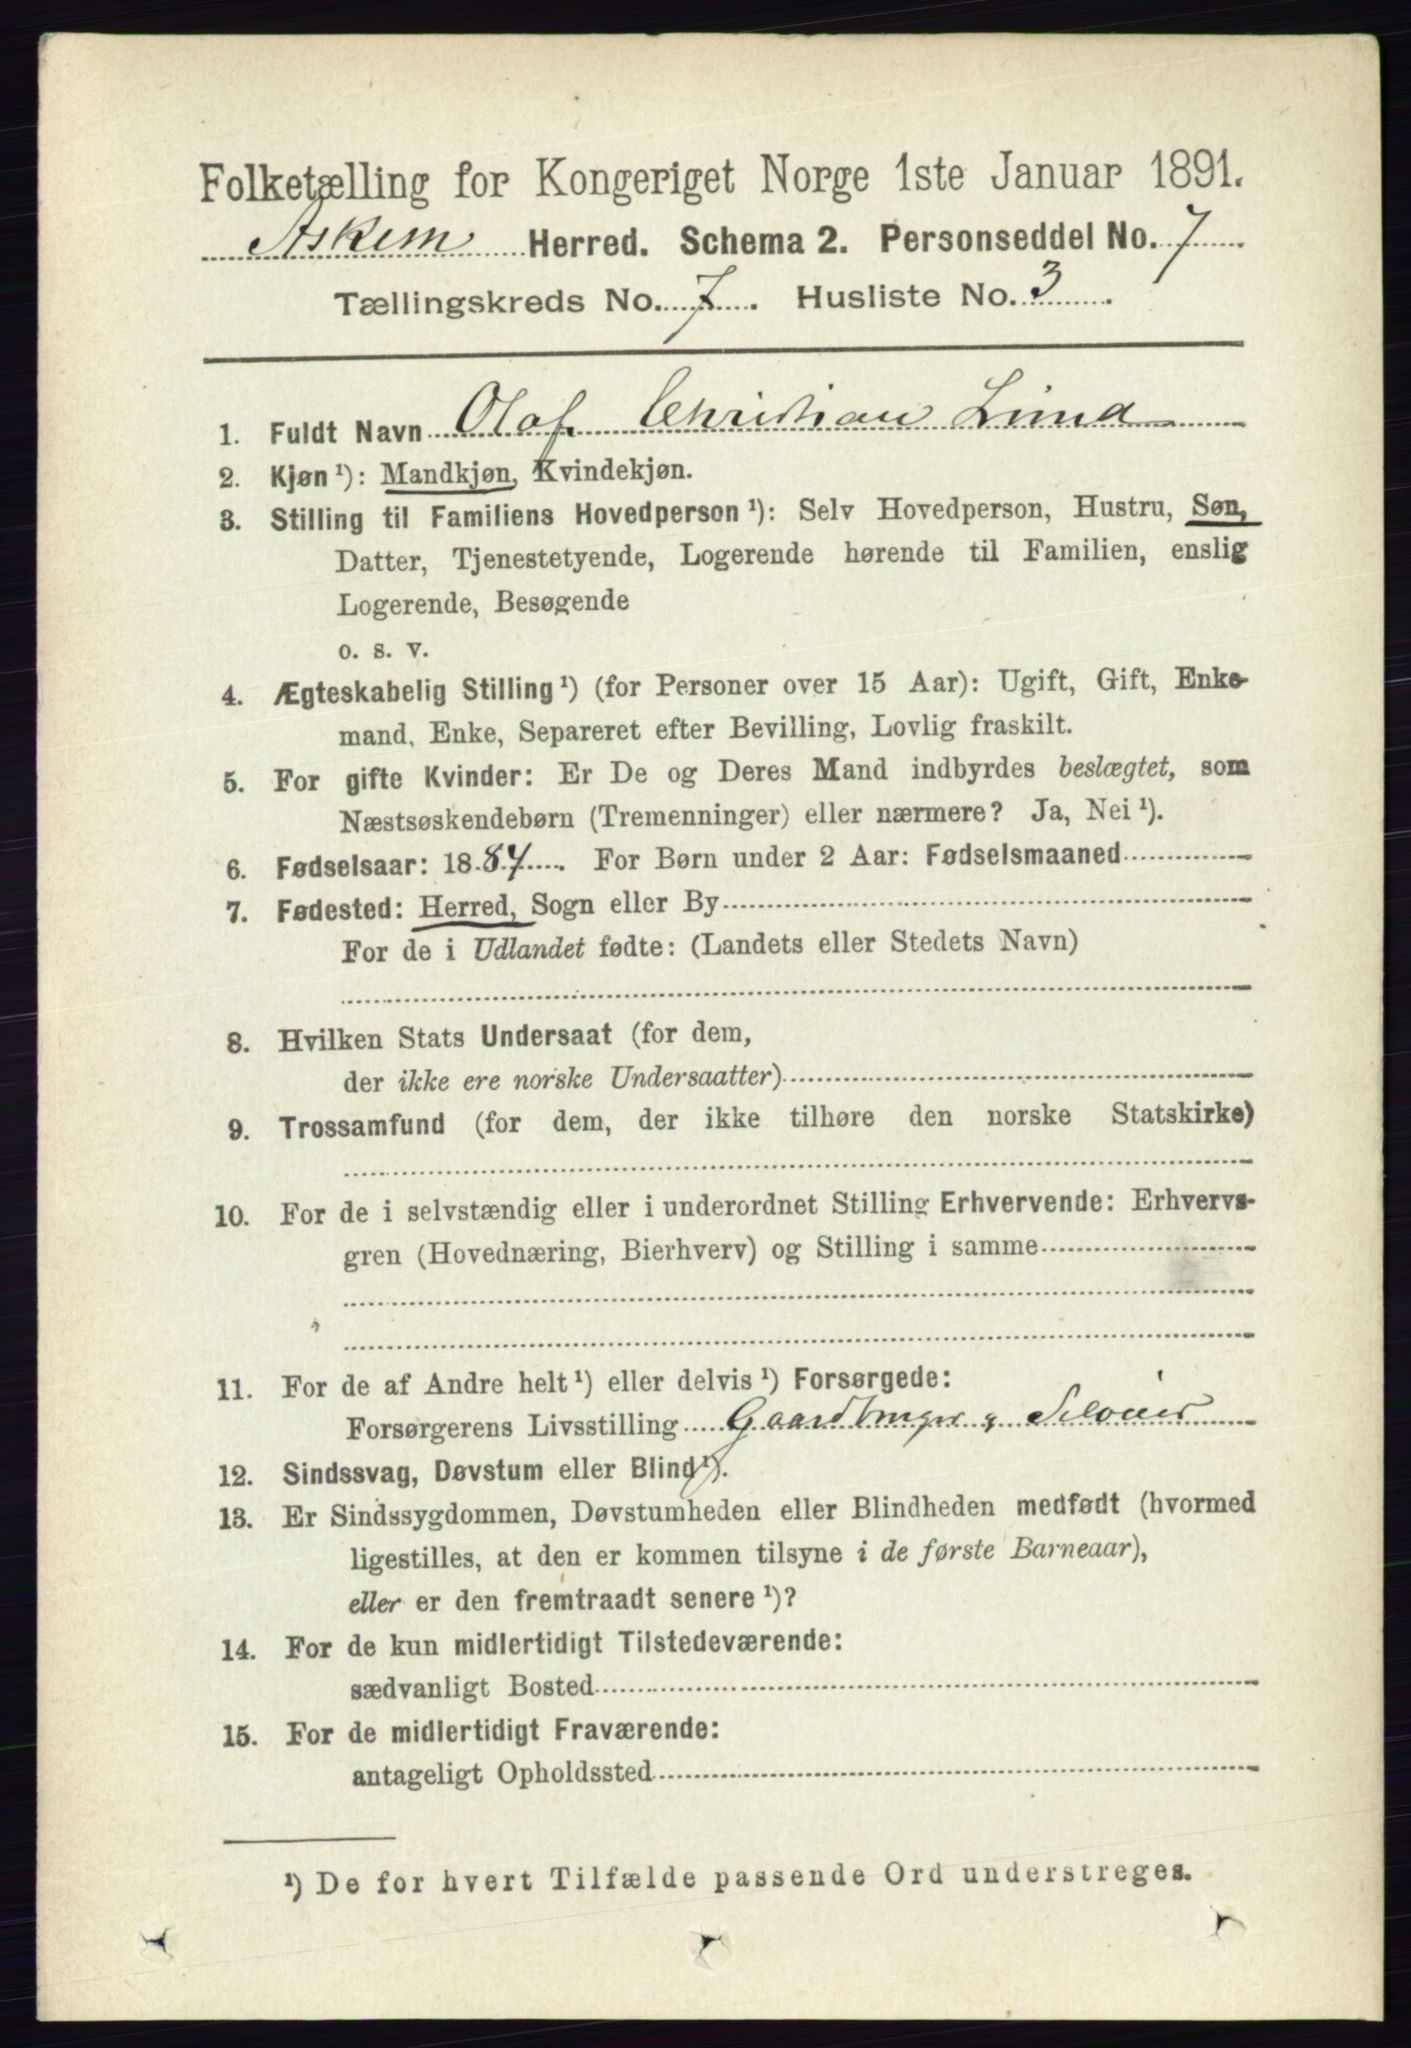 Folketælling for Kongeriget Norge 1ste Januar 1891.
Askim Herred. Schema 2. Personseddel No. 7
Tællingskreds No. 7. Husliste No. 3.
1. Fuldt Navn Olaf Christian Lund
2. Kjøn ¹): Mandkjøn, Kvindekjøn.
3. Stilling til Familiens Hovedperson ¹): Selv Hovedperson, Hustru, Søn,
Datter, Tjenestetyende, Logerende hørende til Familien, enslig
Logerende, Besøgende
o. s. v.
4. Ægteskabelig Stilling ¹) (for Personer over 15 Aar): Ugift, Gift, Enke-
mand, Enke, Separeret efter Bevilling, Lovlig fraskilt.
5. For gifte Kvinder: Er De og Deres Mand indbyrdes beslægtet, som
Næstsøskendebørn (Tremenninger) eller nærmere? Ja, Nei ¹).
6. Fødselsaar: 1887. For Børn under 2 Aar: Fødselsmaaned
7. Fødested: Herred, Sogn eller By
For de i Udlandet fødte: (Landets eller Stedets Navn)
8. Hvilken Stats Undersaat (for dem,
der ikke ere norske Undersaatter)
9. Trossamfund (for dem, der ikke tilhøre den norske Statskirke)
10. For de i selvstændig eller i underordnet Stilling Erhvervende: Erhvervs-
gren (Hovednæring, Bierhverv) og Stilling i samme
11. For de af Andre helt ¹) eller delvis ¹) Forsørgede:
Forsørgerens Livsstilling Gaardbruger &
12. Sindssvag, Døvstum eller Blind ¹).
13. Er Sindssygdommen, Døvstumheden eller Blindheden medfødt (hvormed
ligestilles, at den er kommen tilsyne i de første Barneaar),
eller er den fremtraadt senere ¹)?
14. For de kun midlertidigt Tilstedeværende:
sædvanligt Bosted
15. For de midlertidigt Fraværende:
antageligt Opholdssted
¹) De for hvert Tilfælde passende Ord understreges.